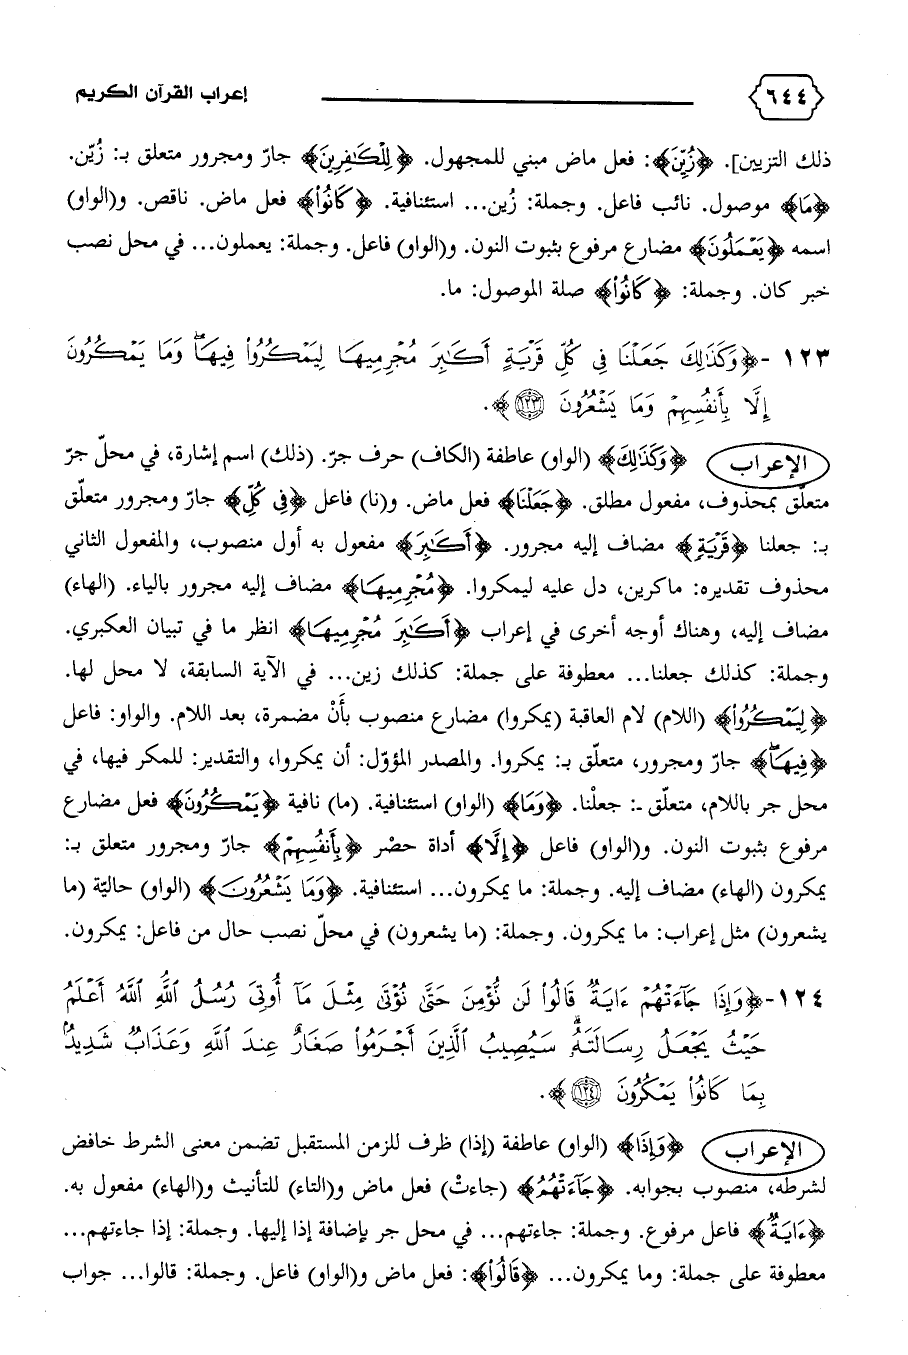 ٦٤٤ إعراب القرآن الكريم
ذلك التزيين]. ﴿زُيِّنَ﴾: فعل ماض مبني للمجهول. ﴿لِلْكَٰفِرِينَ﴾ جارّ ومجرور متعلق بـ: زُيّن.
﴿مَا﴾ موصول. نائب فاعل. وجملة: زُين... استئنافية. ﴿كَانُوا۟﴾ فعل ماض. ناقص. و(الواو)
اسمه ﴿يَعْمَلُونَ﴾ مضارع مرفوع بثبوت النون. و(الواو) فاعل. وجملة: يعملون... في محل نصب
خبر كان. وجملة: ﴿كَانُوا۟﴾ صلة الموصول: ما.
١٢٣ -﴿وَكَذَٰلِكَ جَعَلْنَا فِي كُلِّ قَرْيَةٍ أَكَٰبِرَ مُجْرِمِيهَا لِيَمْكُرُوا۟ فِيهَا ۖ وَمَا يَمْكُرُونَ
إِلَّا بِأَنفُسِهِمْ وَمَا يَشْعُرُونَ ١٢٣﴾.
الإعراب ﴿وَكَذَٰلِكَ﴾ (الواو) عاطفة (الكاف) حرف جرّ. (ذلك) اسم إشارة، في محلّ جرّ
متعلّق بمحذوف، مفعول مطلق. ﴿جَعَلْنَا﴾ فعل ماض. و(نا) فاعل ﴿فِي كُلِّ﴾ جارّ ومجرور متعلّق
بـ: جعلنا ﴿قَرْيَةٍ﴾ مضاف إليه مجرور. ﴿أَكَٰبِرَ﴾ مفعول به أول منصوب، والمفعول الثاني
محذوف تقديره: ماكرين، دل عليه ليمكروا. ﴿مُجْرِمِيهَا﴾ مضاف إليه مجرور بالياء. (الهاء)
مضاف إليه، وهناك أوجه أخرى في إعراب ﴿أَكَٰبِرَ مُجْرِمِيهَا﴾ انظر ما في تبيان العكبري.
وجملة: كذلك جعلنا... معطوفة على جملة: كذلك زين... في الآية السابقة، لا محل لها.
﴿لِيَمْكُرُوا۟﴾ (اللام) لام العاقبة (يمكروا) مضارع منصوب بأَنْ مضمرة، بعد اللام. والواو: فاعل
﴿فِيهَا ۖ﴾ جارّ ومجرور، متعلّق بـ: يمكروا. والمصدر المؤوّل: أن يمكروا، والتقدير: للمكر فيها، في
محل جر باللام، متعلّق ـ: جعلْنا. ﴿وَمَا﴾ (الواو) استئنافية. (ما) نافية ﴿يَمْكُرُونَ﴾ فعل مضارع
مرفوع بثبوت النون. و(الواو) فاعل ﴿إِلَّا﴾ أداة حصْر ﴿بِأَنفُسِهِمْ﴾ جارّ ومجرور متعلق بـ:
يمكرون (الهاء) مضاف إليه. وجملة: ما يمكرون... استئنافية. ﴿وَمَا يَشْعُرُونَ﴾ (الواو) حاليّة (ما
يشعرون) مثل إعراب: ما يمكرون. وجملة: (ما يشعرون) في محلّ نصب حال من فاعل: يمكرون.
١٢٤-﴿وَإِذَا جَآءَتْهُمْ ءَايَةٌ قَالُوا۟ لَن نُّؤْمِنَ حَتَّىٰ نُؤْتَىٰ مِثْلَ مَآ أُوتِيَ رُسُلُ ٱللَّهِ ۘ ٱللَّهُ أَعْلَمُ
حَيْثُ يَجْعَلُ رِسَالَتَهُۥ ۗ سَيُصِيبُ ٱلَّذِينَ أَجْرَمُوا۟ صَغَارٌ عِندَ ٱللَّهِ وَعَذَابٌ شَدِيدٌۢ
بِمَا كَانُوا۟ يَمْكُرُونَ ١٢٤﴾.
الإعراب ﴿وَإِذَا﴾ (الواو) عاطفة (إذا) ظرف للزمن المستقبل تضمن معنى الشرط خافض
لشرطه، منصوب بجوابه. ﴿جَآءَتْهُمْ﴾ (جاءتْ) فعل ماض و(التاء) للتأنيث و(الهاء) مفعول به.
﴿ءَايَةٌ﴾ فاعل مرفوع. وجملة: جاءتهم... في محل جر بإضافة إذا إليها. وجملة: إذا جاءتهم...
معطوفة على جملة: وما يمكرون... ﴿قَالُوا۟﴾: فعل ماض و(الواو) فاعل. وجملة: قالوا... جواب